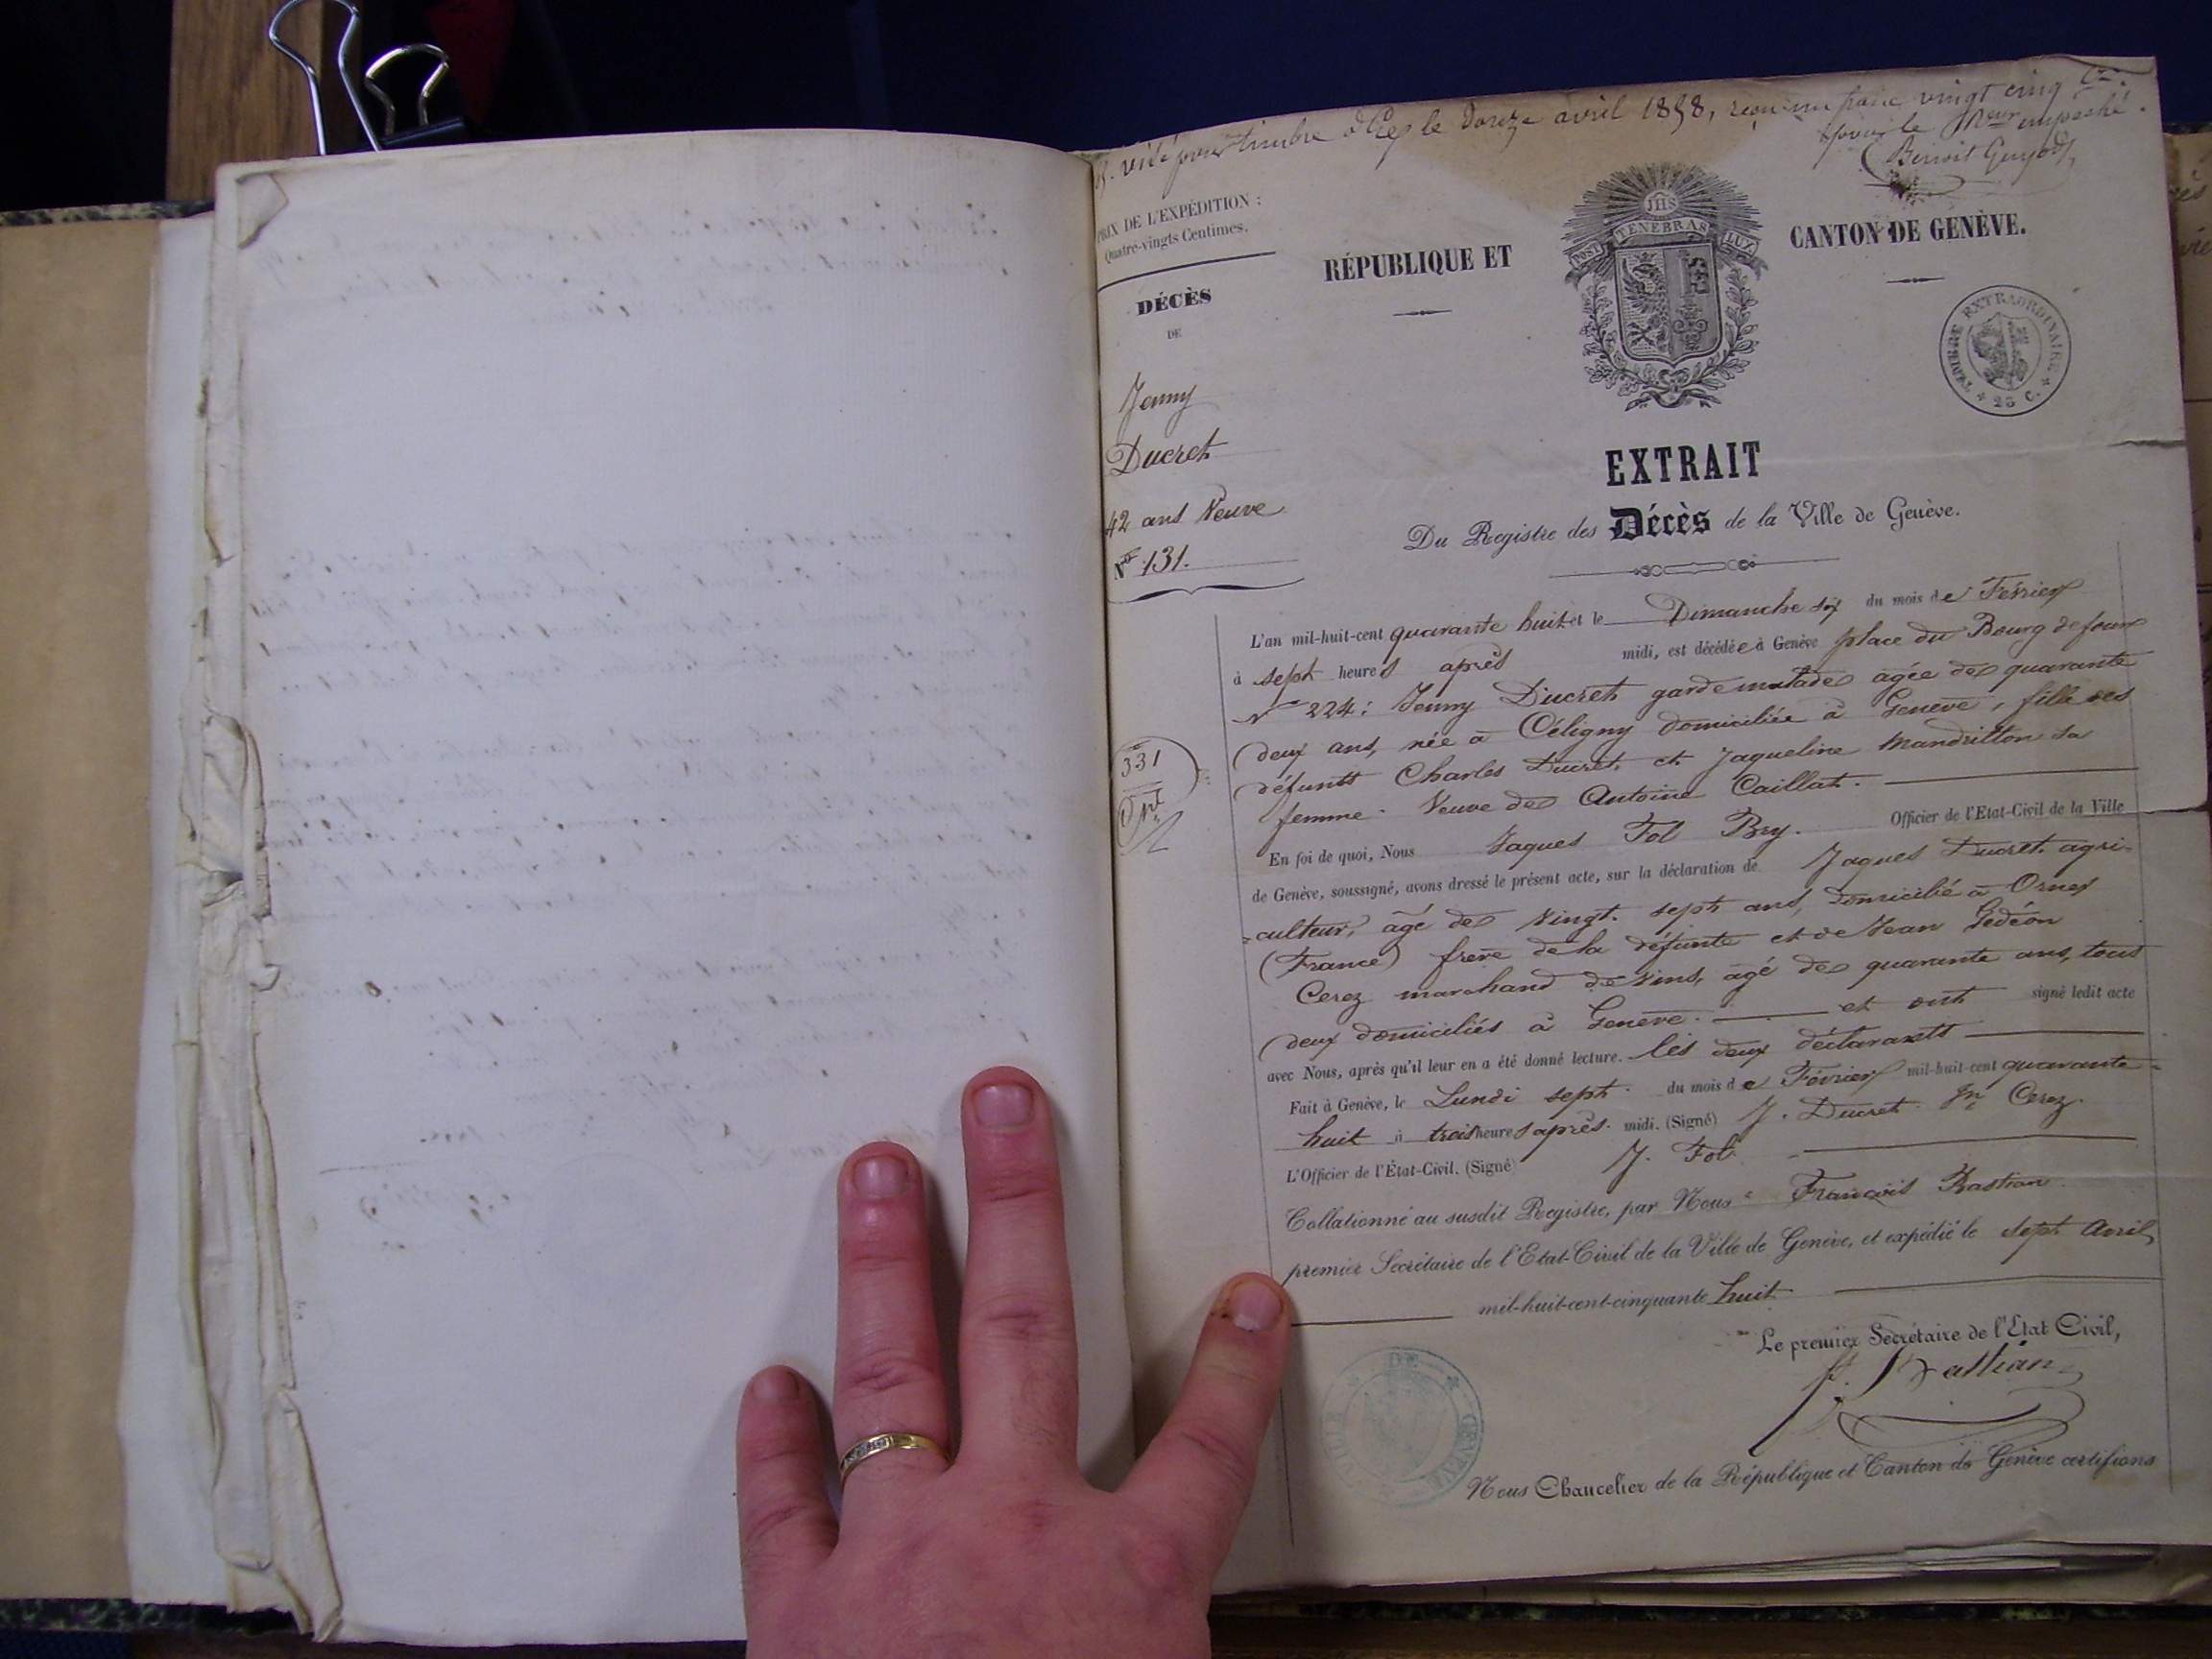 visé pour timbre à Gex le douze avril 1858, reçu un franc vingt cinq c.
pour le Receveur empêché.
Benoit Guyod
PRIX DE L'EXPÉDITION :
Quatre-vingts Centimes.
DÉCÈS
DE
Jenny
Ducret
42 ans Veuve
No 131.
331
RÉPUBLIQUE ET
JHS
POST TENEBRAS LUX
CANTON DE GENÈVE.
TIMBRE EXTRAORDINAIRE * 25 C. *
EXTRAIT
Du Registre des Décès de la Ville de Genève.
L'an mil-huit-cent quarante huit et le Dimanche six du mois de Février
à sept heures après midi, est décédée à Genève place du Bourg de four
No 224 : Jenny Ducret garde malade agée de quarante
deux ans, née à Céligny domiciliée à Genève, fille des
défunts Charles Ducret et Jaqueline Mandrillon sa
femme. Veuve de Antoine Caillat.
En foi de quoi, Nous Jaques Fol Bry. Officier de l'Etat-Civil de la Ville
de Genève, soussigné, avons dressé le présent acte, sur la déclaration de Jaques Ducret agri-
-culteur, agé de vingt sept ans, domicilié à Ornex
(France) frère de la défunte et de Jean Gédéon
Cerez marchand de vins, agé de quarante ans, tous
deux domiciliés à Genève. et ont signé ledit acte
avec Nous, après qu'il leur en a été donné lecture. les deux déclarants
Fait à Genève, le Lundi sept du mois de Février mil-huit-cent quarante-
huit à trois heures après midi. (Signé) J. Ducret Jn Cerez.
L'Officier de l'État-Civil. (Signé) J. Fol
Collationné au susdit Registre, par Nous François Bastian
premier Secrétaire de l'Etat-Civil de la Ville de Genève, et expédié le sept Avril
mil-huit-cent-cinquante huit
Le premier Secrétaire de l'Etat Civil,
F. Bastian
VILLE DE GENÈVE
Nous Chancelier de la République et Canton de Genève certifions